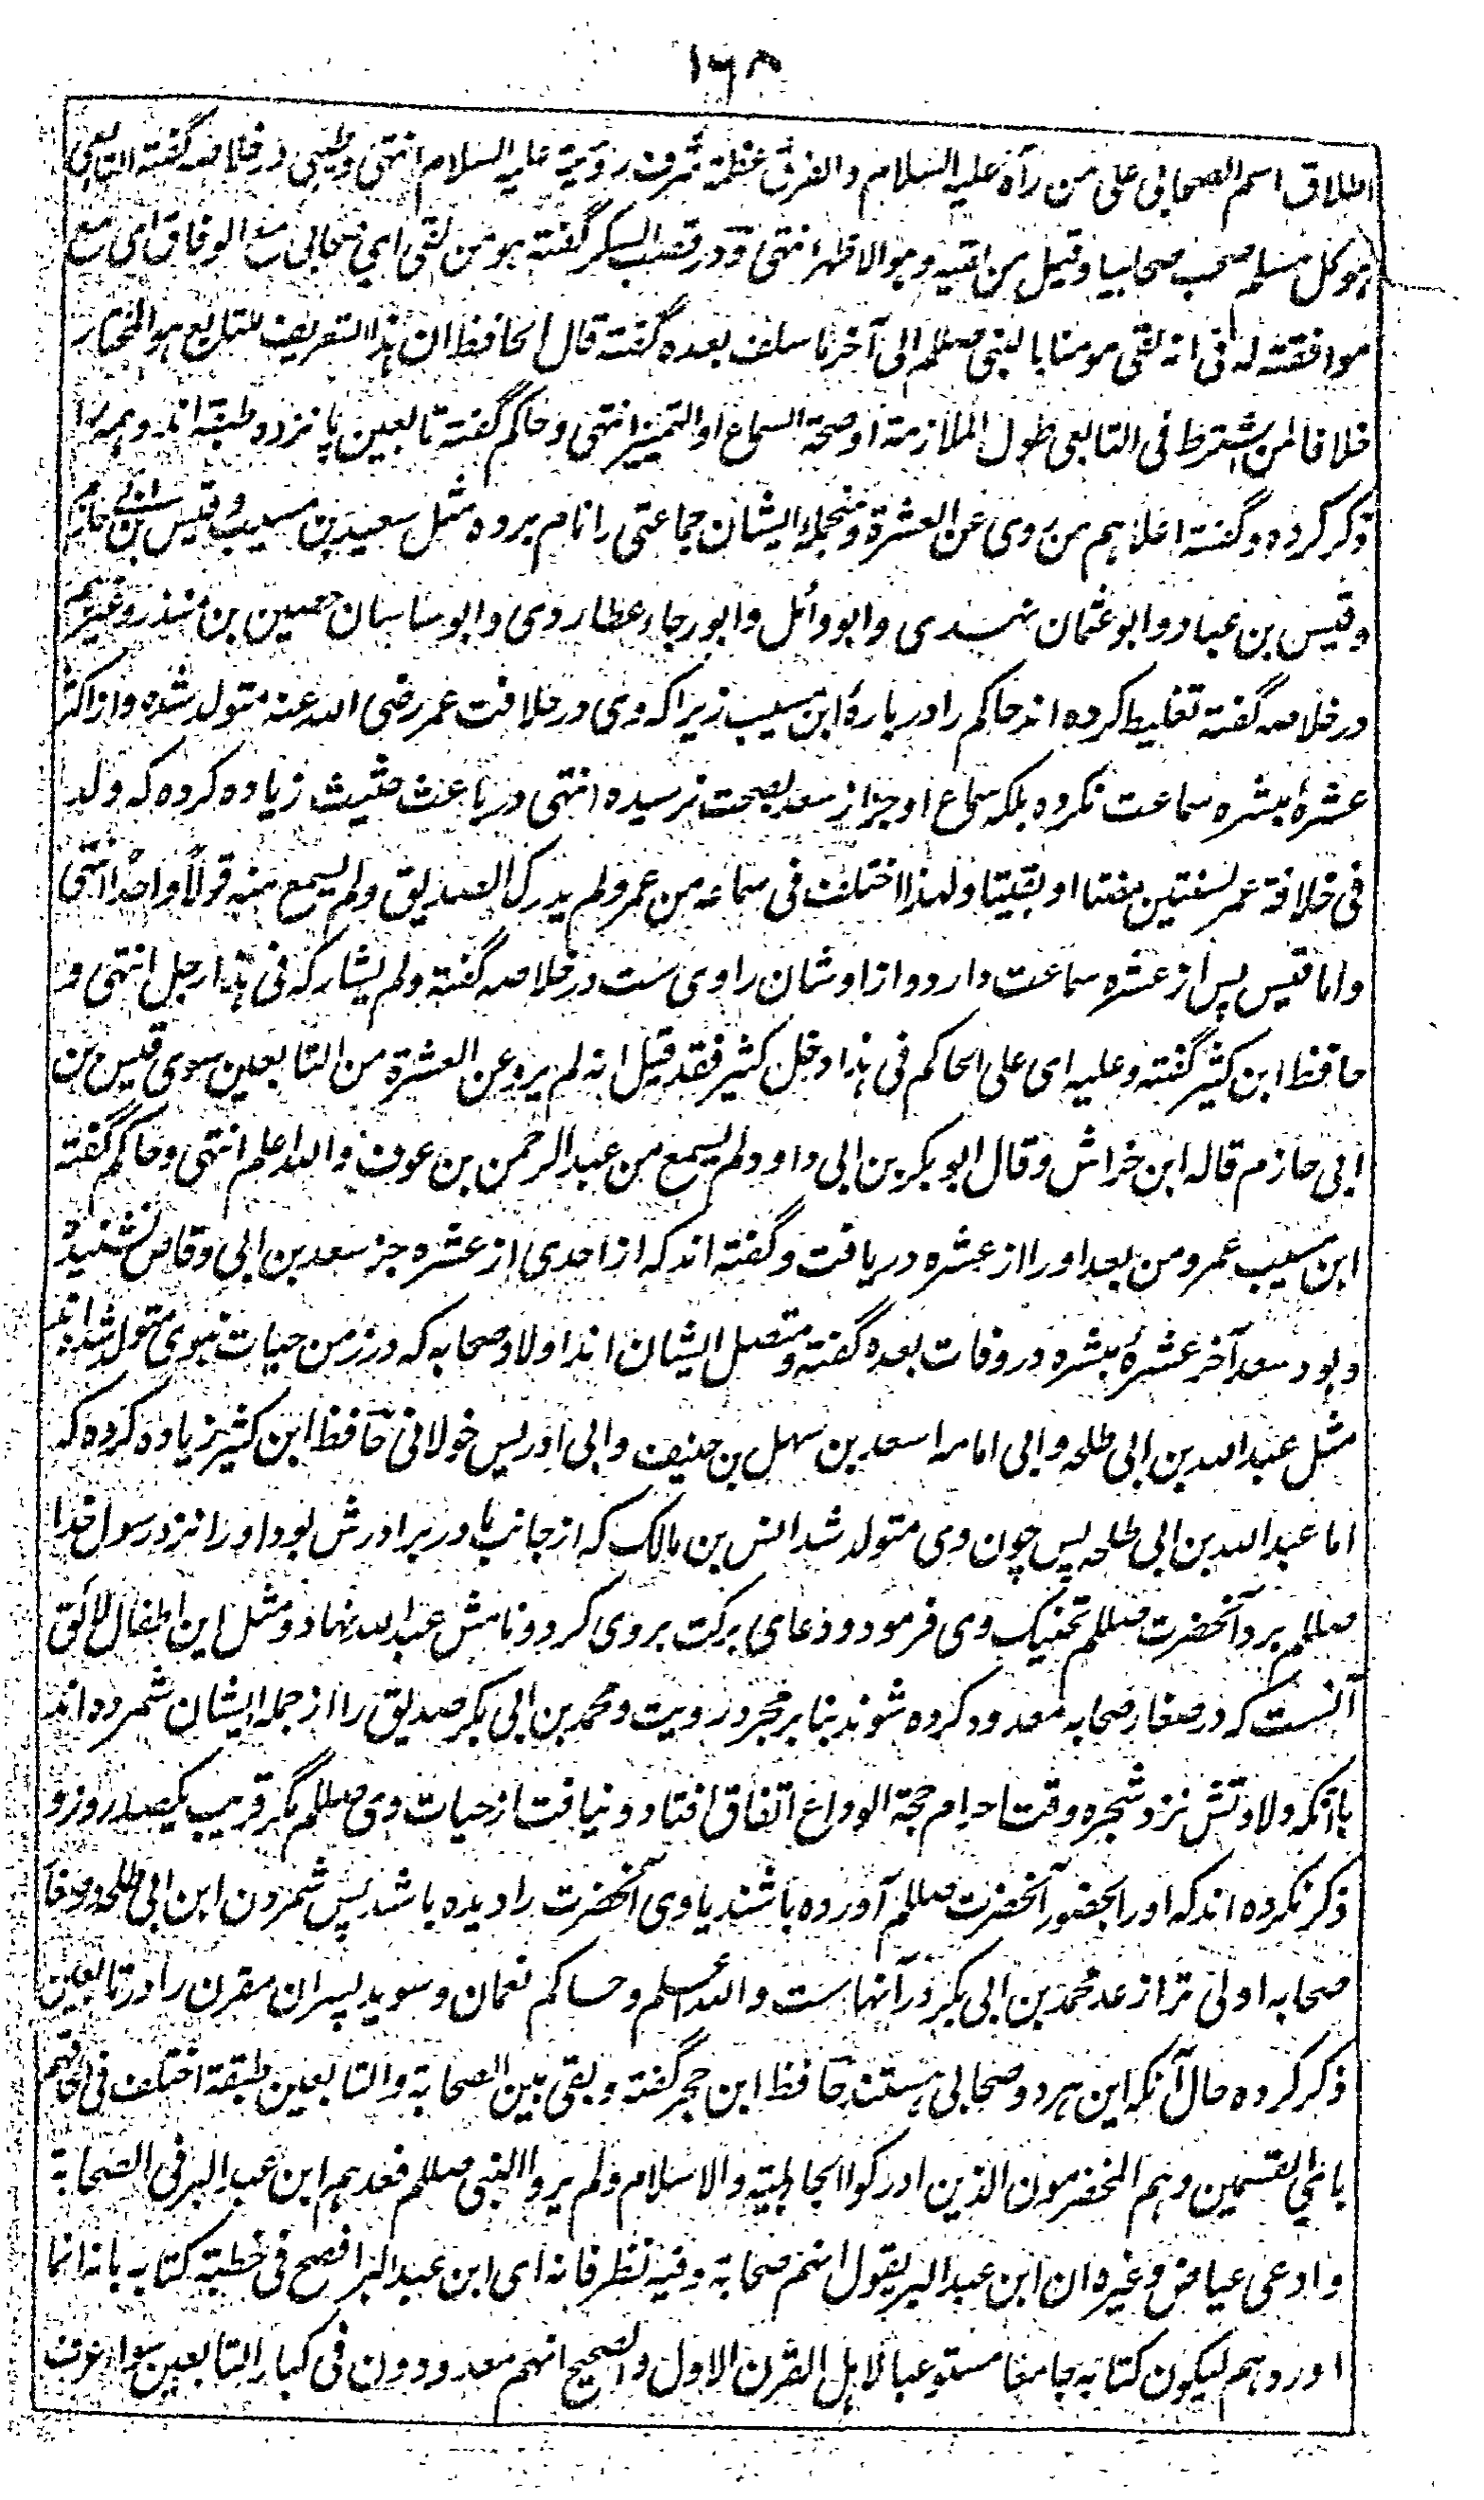 ۱۶۸
اطلاق اسم الصحابی علی من رآه علیه السلام والفرق عظمة شرف رؤیة علیه السلام انتهی وطیبی در خلاصه گفته التابعی
هو کل مسلم صحب صحابیا وقیل من لقیه وهو الاظهر انتهی و در قصب السکر گفته هو من لقی ای صحابی مع الوفاق ای مع
موافقته له فی انه لقی مومنا بالنبی صللم الی آخر ما سلف بعده گفته قال الحافظ ان هذا التعریف للتابع هو المختار
خلافا لمن اشترط فی التابعی طول الملازمة او صحة السماع او التمییز انتهی وحاکم گفته تابعین پانزده طبقه اند وهمه را
ذکر کرده وگفته اعلاهم من روی عن العشرة ومنجمله ایشان جماعتی را نام برده مثل سعید بن مسیب وقیس بن ابی حازم
وقیس بن عباد وابو عثمان نهدی وابو وائل وابو رجاء عطاردی وابو ساسان حصین بن منذر وغیرهم
در خلاصه گفته تغلیط کرده اند حاکم را در باره ابن مسیب زیرا که وی در خلافت عمر رضی الله عنه متولد شده واز اکثر
عشرۀ مبشره سماعت نکرده بلکه سماع او جز از سعد بصحت نرسیده انتهی در باعث حثیث زیاده کرده که ولد
فی خلافة عمر لسنتین مضتا او بقیتا ولهذا اختلف فی سماعه من عمر ولم یدرک الصدیق ولم یسمع منه قولاً واحداً انتهی
واما قیس پس از عشره سماعت دارد واز اوشان راوی ست در خلاصه گفته ولم یشارکه فی هذا رجل انتهی و
حافظ ابن کثیر گفته وعلیه ای علی الحاکم فی هذا دخل کثیر فقد قیل انه لم یرو عن العشرة من التابعین سوی قیس بن
ابی حازم قاله ابن خراش وقال ابو بکر بن ابی داود لم یسمع من عبد الرحمن بن عوف والله اعلم انتهی وحاکم گفته
ابن مسیب عمر ومن بعد او را از عشره دریافت وگفته اند که از احدی از عشره جز سعد بن ابی وقاص نشنیده
وبود سعد آخر عشرۀ مبشره در وفات بعده گفته ومتصل ایشان اند اولاد صحابه که در زمن حیات نبوی متولد شده اند
مثل عبد الله بن ابی طلحه وابی امامه اسعد بن سهل بن حنیف وابی ادریس خولانی حافظ ابن کثیر زیاده کرده که
اما عبد الله بن ابی طلحه پس چون وی متولد شد انس بن مالک که از جانب مادر برادرش بود او را نزد رسول خدا
صللم برد آنحضرت صللم تحنیک وی فرمود ودعای برکت بروی کرد ونامش عبد الله نهاد ومثل این اطفال لائق
آنست که در صغار صحابه معدود کرده شوند بنا بر مجرد رویت ومحمد بن ابی بکر صدیق را از جمله ایشان شمرده اند
با آنکه ولادتش نزد شجره وقت احرام حجة الوداع اتفاق افتاد ونیافت از حیات وی صللم مگر قریب یکصد روز و
ذکر نکرده اند که او را بحضور آنحضرت صللم آورده باشند یا وی آنحضرت را دیده باشد پس شمردن ابن ابی طلحه در صغار
صحابه اولی تر از عد محمد بن ابی بکر در آنها ست والله اعلم وحاکم نعمان وسوید پسران مقرن را در تابعین
ذکر کرده حال آنکه این هر دو صحابی هستند حافظ ابن حجر گفته وبقی بین الصحابة والتابعین طبقة اختلف فی الحاقهم
بای القسمین وهم المخضرمون الذین ادرکوا الجاهلیة والاسلام ولم یروا النبی صللم فعدهم ابن عبد البر فی الصحابة
وادعی عیاض وغیره ان ابن عبد البر یقول انهم صحابة وفیه نظر فانه ای ابن عبد البر افصح فی خطبة کتابه بانه انما
اوردهم لیکون کتابه جامعا مستوعبا لاهل القرن الاول والصحیح انهم معدودون فی کبار التابعین سواء عرف